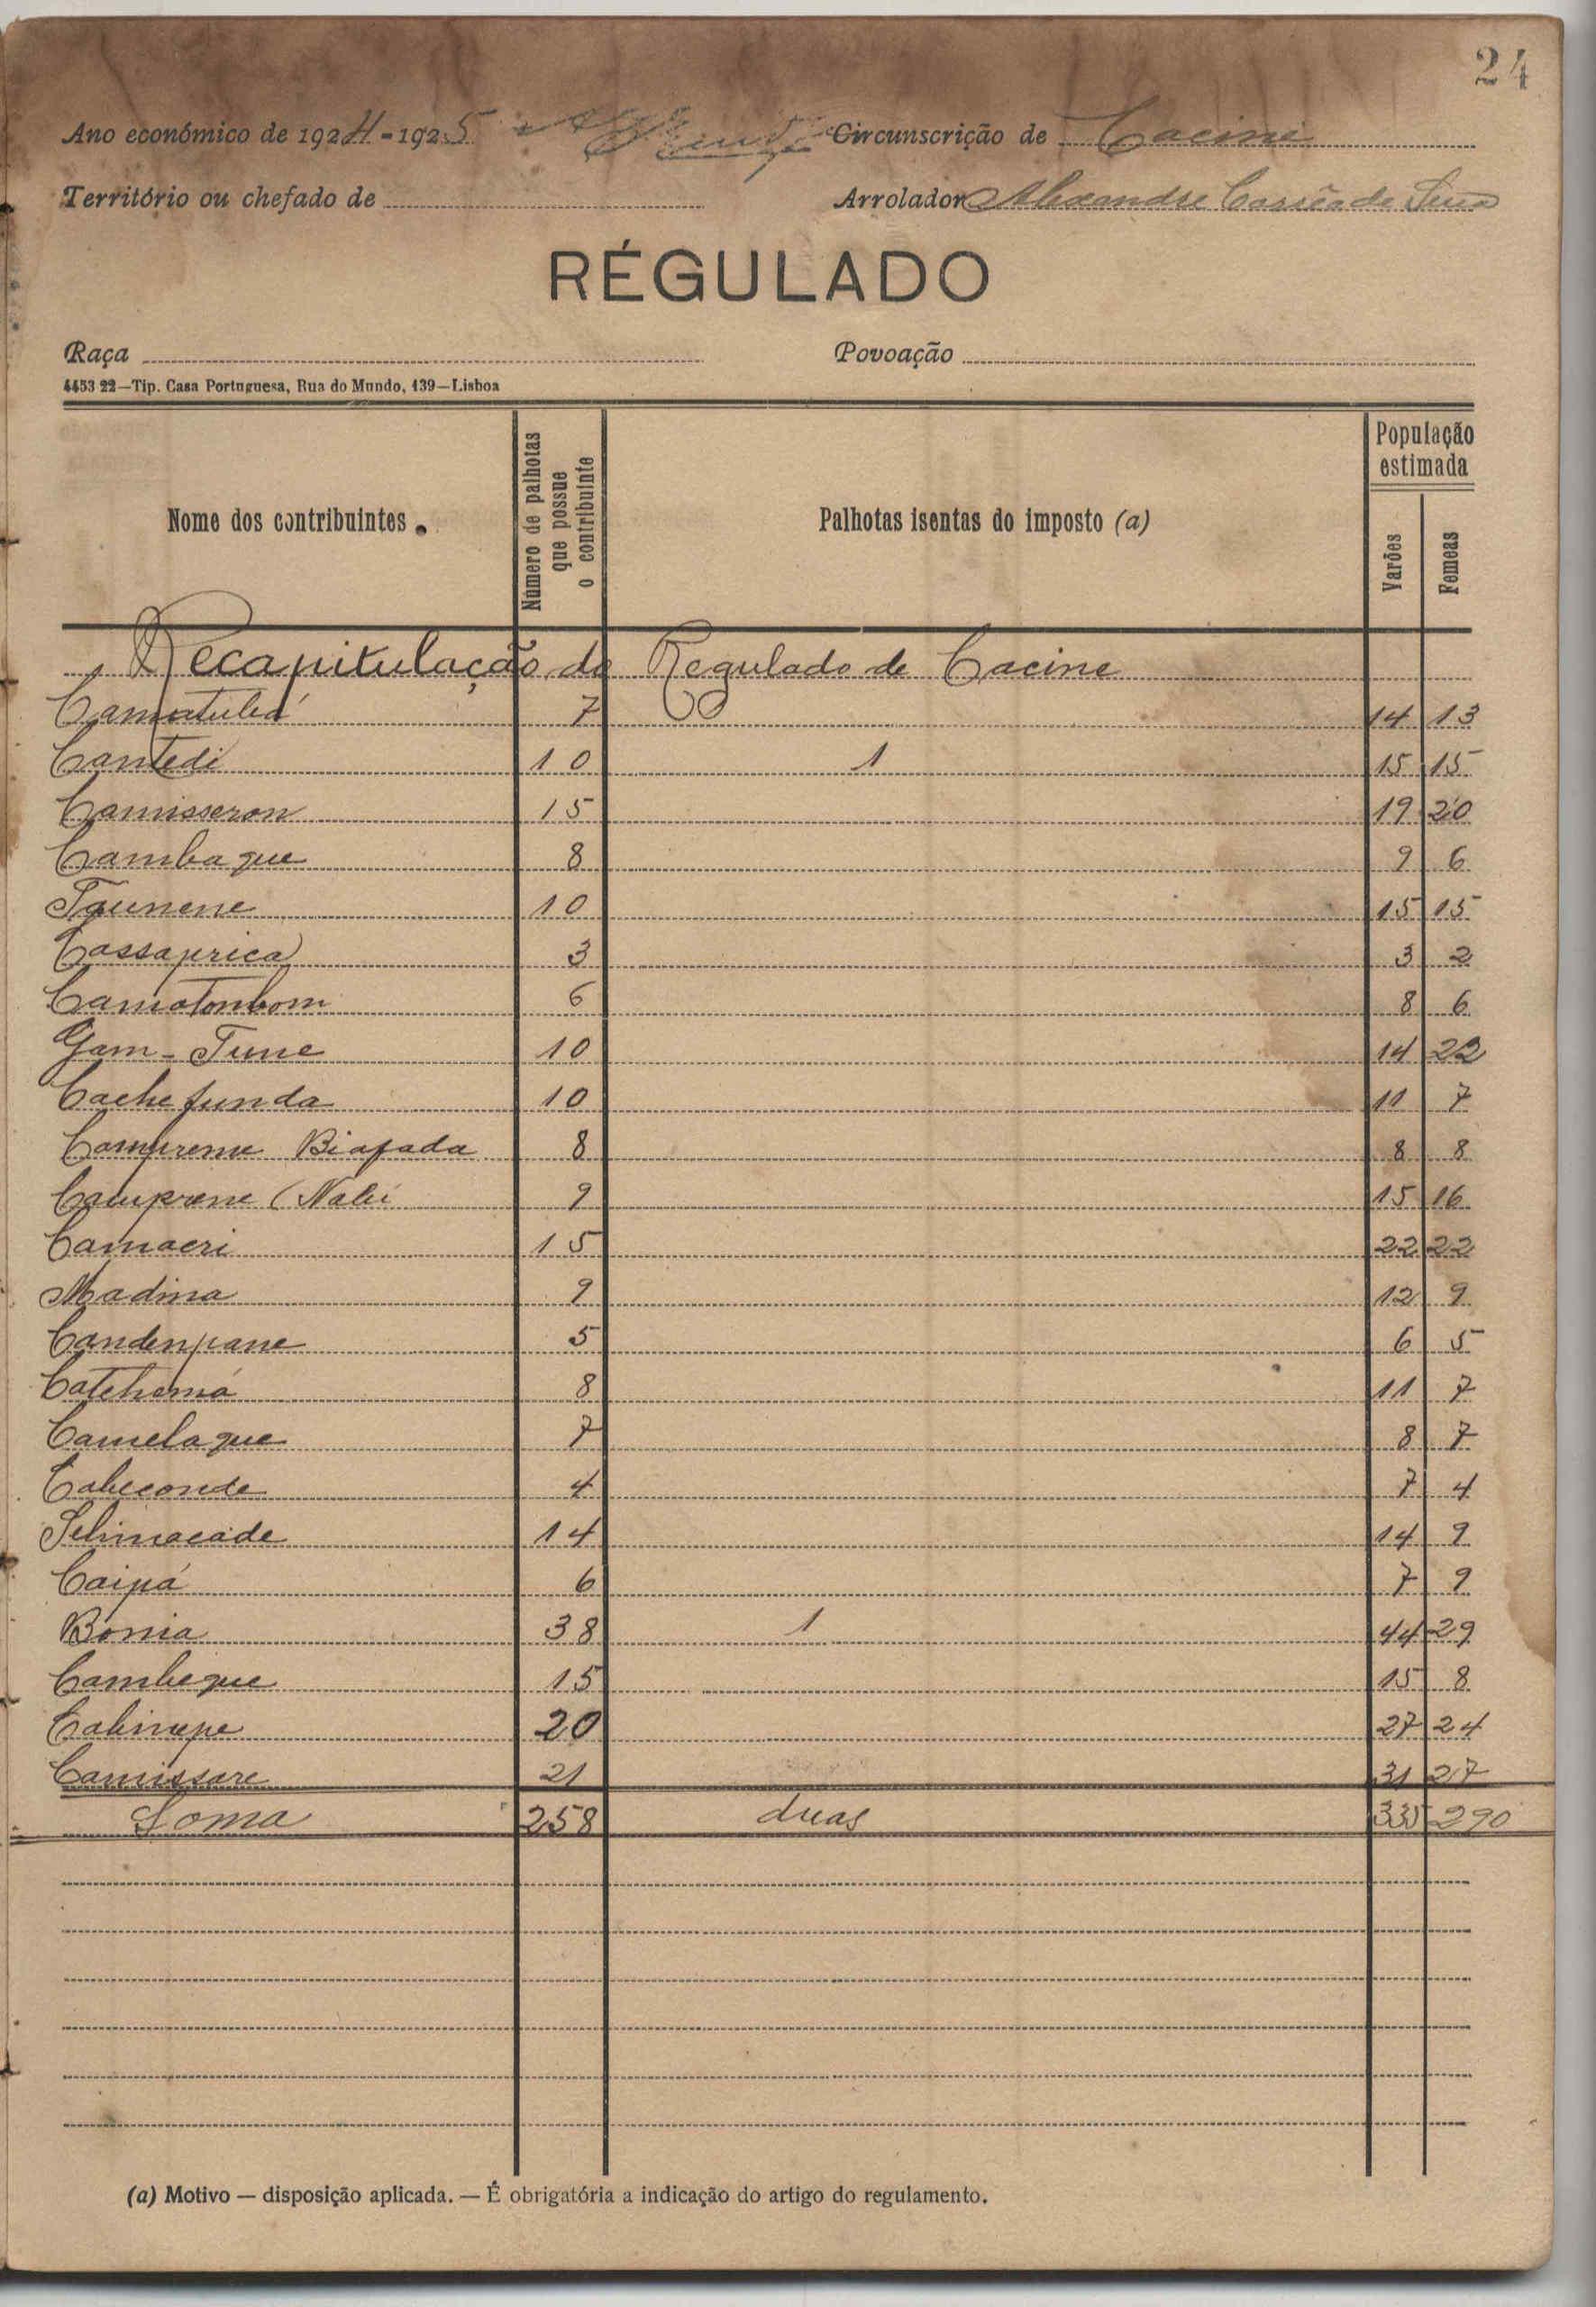 24
Ano económico de 1924-1925 Circunscrição de Cacine
Território ou chefado de Arrolador Alexandre Corrêa de
RÉGULADO
Raça Povoação
4453 22—Tip. Casa Portuguesa, Rua do Mundo, 139—Lisboa
Nome dos contribuintes Número de palhotas que possue o contribuinte Palhotas isentas do imposto (a) População estimada Varões Femeas
Recapitulação do Regulado de Cacine
Camatubá 7 14 13
Cantedi 10 1 15 15
Camisseron 15 19 20
Cambaque 8 9 6
10 15 15
Cassaprica 3 3 2
Camotombom 6 8 6
Gam-Tune 10 14 22
Cachefunda 10 11 7
Comprene Biafada 8 8 8
Camprene (Nalú 9 15 16
Camaeri 15 22 22
Madina 9 12 9
Candenpane 5 6 5
Catchamá 8 11 7
Camelaque 7 8 7
Cabeconde 4 7 4
14 14 9
Caipá 6 7 9
Bomia 38 1 44 29
Cambeque 15 15 8
Cabinepe 20 27 24
Camissore 21 31 27
Soma 258 duas 335 290
(a) Motivo — disposição aplicada. — É obrigatória a indicação do artigo do regulamento.